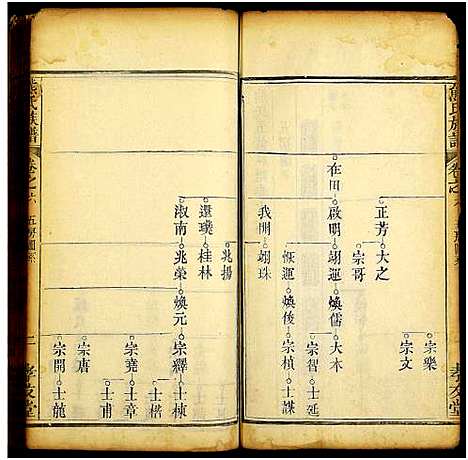 熊氏族譜
卷之六
五房圖系
孝友堂
宗樂
宗文
正芳
大之
宗哥
在田
啟明
翊運
煥儒
大本
宗智
士延
恢運
煥後
宗楨
士謀
我明
翊珠
兆揚
還璞
桂林
淑南
兆榮
煥元
宗繹
士棟
士楷
宗堯
士章
士甫
宗唐
宗開
士龍
熊氏族譜
卷之六
五房圖系
二
孝友堂